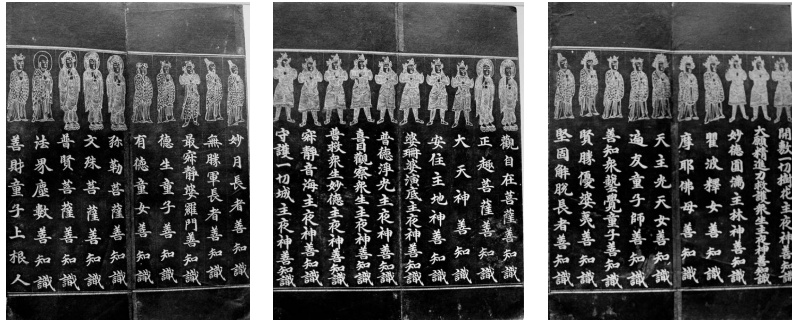 妙月長者善知識
無勝軍長者善知識
最寂靜婆羅門善知識
德生童子善知識
有德童女善知識
弥勒菩薩善知識
文殊菩薩善知識
普賢菩薩善知識
法界塵數善知識
善財童子上根人
觀自在菩薩善知識
正趣菩薩善知識
大天神善知識
安住主地神善知識
婆珊婆演底主夜神善知識
普德淨光主夜神善知識
喜目觀察衆生主夜神善知識
普救衆生妙德主夜神善知識
寂靜音海主夜神善知識
守護一切城主夜神善知識
開敷一切樹花主夜神善知識
大願精進力救護衆生主夜神善知識
妙德圓滿主林神善知識
瞿波釋女善知識
摩耶佛母善知識
天主光天女善知識
遍友童子師善知識
善知衆藝覺童子善知識
賢勝優婆夷善知識
堅固解脫長者善知識